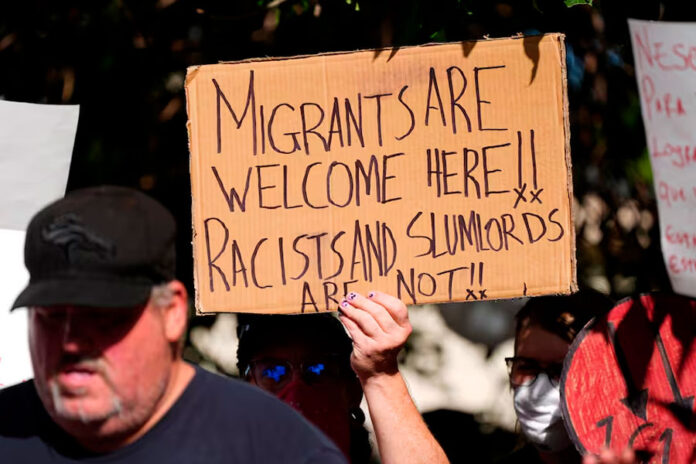 MIGRANTS ARE
WELCOME HERE!!
RACISTS AND SLUMLORDS
ARE NOT!!
Para
Logra
que
161